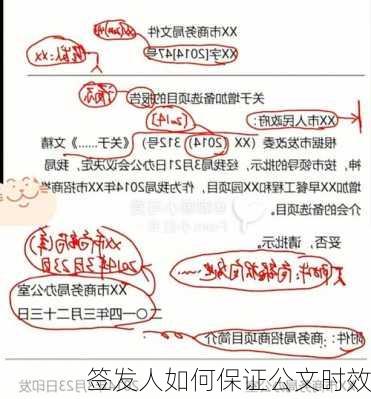 XX市商务局文件
XX字[2014]47号
签发人:xx
关于增加备选项目的报告
请示
[2014]
XX市人民政府:
根据市发改委(XX(2014)312号)《关于……》文精
神,按市领导的批示,经我局3月21日办公会议决定,我局
增加XX早餐工程和XX园项目,作为我局2014年XX市招商
介会的备选项目。
妥否,请批示。
XX市商务局(章)
2014年3月23日
XX市商务局办公室
二〇一四年三月二十三日
附件:商务局招商项目简介
签发人如何保证公文时效
23日印发